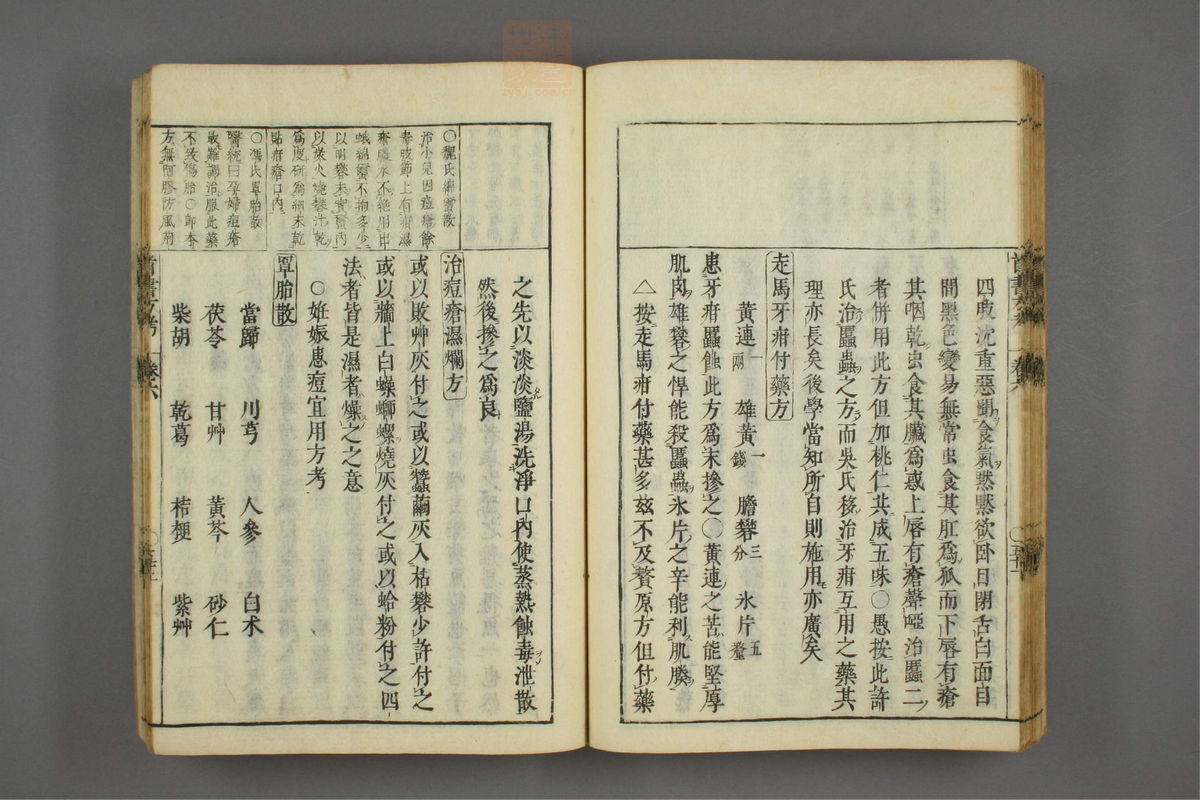 四肢沈重惡聞食氣默默欲卧目閉舌白面目
間黑色變易無常虫食其肛爲狐而下唇有瘡
其咽乾虫食其臟爲惑上唇有瘡聲啞治䘌二
者併用此方但加桃仁共成五味〇愚按此許
氏治䘌蟲之方而吳氏移治牙疳互用之藥其
理亦長矣後學當知所自則施用亦廣矣
走馬牙疳付藥方
黃連一兩 雄黃一錢 膽礬三分 氷片五釐
患牙疳䘌蝕此方爲末摻之〇黃連之苦能堅厚
肌肉雄礬之悍能殺䘌蟲氷片之辛能利肌腠
△按走馬疳付藥甚多玆不及贅原方但付藥
之先以淡淡鹽湯洗淨口內使蒸熱蝕毒泄散
然後摻之爲良
治痘瘡濕爛方
或以敗艸灰付之或以蠶繭灰入枯礬少許付之
或以牆上白螺螄螺燒灰付之或以蛤粉付之四
法者皆是濕者燥之之意
〇姙娠患痘宜用方考
罩胎散
當歸 川芎 人參 白朮
茯苓 甘艸 黃芩 砂仁
柴胡 乾葛 桔梗 紫艸
〇魏氏綿繭散
治小兒因痘瘡餘
毒肢節上有疳濕
瘡膿水不絕用出
蛾綿蠶不拘多少
以明礬末實繭內
以炭火燒礬汁乾
爲度研爲細末乾
貼疳瘡口內
〇馮氏罩胎散
醫統曰孕婦痘瘡
最難調治服此藥
不致傷胎〇卽本
方無阿膠防風荊
首書方考 卷六